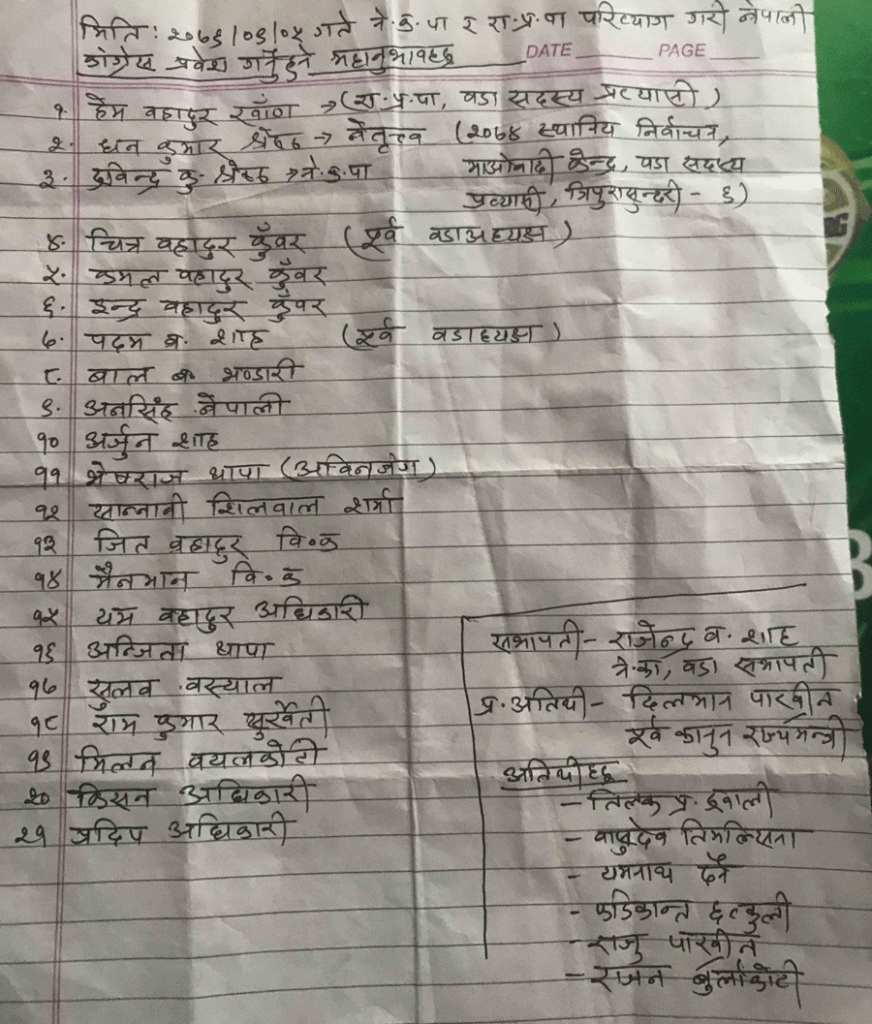 मिति: २०७९/०९/०५ गते ने.क.पा र रा.प्र.पा परित्याग गरी नेपाली
कांग्रेस प्रवेश गर्नुहुने महानुभावहरू
DATE PAGE
१. हेम बहादुर खाँण → (रा.प्र.पा, वडा सदस्य प्रत्यासी)
२. धन कुमार श्रेष्ठ → नेतृत्व (२०७४ स्थानिय निर्वाचन,
३. द्रविन्द्र कु. श्रेष्ठ → ने.क.पा माओवादी केन्द्र, वडा सदस्य
प्रत्यासी, त्रिपुरासुन्दरी - ६)
४. चित्र बहादुर कुँवर (पूर्व वडाअध्यक्ष)
५. कमल बहादुर कुँवर
६. इन्द्र बहादुर कुँवर
७. पदम ब. शाह (पूर्व वडाध्यक्ष)
८. बाल ब. भण्डारी
९. अनसिंह नेपाली
१० अर्जुन शाह
११ भेषराज थापा (अविनजंग)
१२ सान्नानी शिलवाल शर्मा
१३ जित बहादुर वि.क
१४ मैनमान वि.क
१५ यम बहादुर अधिकारी
१६ अन्जिता थापा
१७ सुलव वस्याल
१८ राम कुमार सुवेती
१९ मिलन वयलकोटी
२० किसन अधिकारी
२१ प्रदिप अधिकारी
सभापती - राजेन्द्र ब. शाह
ने.का, वडा सभापती
प्र. अतिथी - दिलमान पाख्रीन
पूर्व कानुन राज्यमन्त्री
अतिथीहरू
- तिलक प्र. ढुवाली
- वासुदेव तिमल्सिना
- यमनाथ ढुंगेल
- फडिकान्त छत्कुली
- राजु पाख्रीन
- राजन बुर्लाकोटी